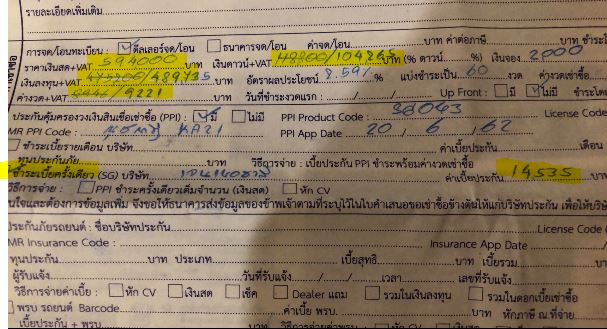 รายละเอียดเพิ่มเติม
การจด/โอนทะเบียน : ดีลเลอร์จด/โอน ธนาคารจด/โอน ค่าจด/โอน บาท ค่าต่อภาษี บาท ชำระโ
ราคาเงินสด+VAT 594000 เงินดาวน์+VAT /104265 บาท (% ดาวน์ %) เงินจอง 2000
เงินลงทุน+VAT /489735 บาท อัตราผลประโยชน์ 8.59% % แบ่งชำระเป็น 60 งวด ค่างวดเช่าซื้อ
ค่างวด+VAT /8221 บาท วันที่ชำระงวดแรก : / / Up Front : มี ไม่มี ชำระโดย
ประกันคุ้มครองวงเงินสินเชื่อเช่าซื้อ (PPI) : มี ไม่มี PPI Product Code : 36043 License Code
MR PPI Code : KA21 PPI App Date 20 / 6 / 62
ชำระเบี้ยรายเดือน บริษัท ค่าเบี้ยประกัน เดือน
ทุนประกันภัย บาท วิธีการจ่าย : เบี้ยประกัน PPI ชำระพร้อมค่างวดเช่าซื้อ
ชำระเบี้ยครั้งเดียว (SG) บริษัท ค่าเบี้ยประกัน 14535 บาท
วิธีการจ่าย : PPI ชำระครั้งเดียวเต็มจำนวน (เงินสด) หัก CV
นใจและต้องการข้อมูลเพิ่ม จึงขอให้ธนาคารส่งข้อมูลของข้าพเจ้าตามที่ระบุไว้ในใบคำเสนอขอเช่าซื้อข้างต้นให้แก่บริษัทประกัน เพื่อให้บริษ
ประกันภัยรถยนต์ : ชื่อบริษัทประกัน License Code (
MR Insurance Code : Insurance App Date /
ทุนประกัน บาท ประเภท เบี้ยสุทธิ บาท เบี้ยรวม บาท
ผู้รับแจ้ง วันที่รับแจ้ง / / เวลา เลขที่รับแจ้ง
วิธีการจ่ายค่าเบี้ย : หัก CV เงินสด เช็ค Dealer แถม รวมในเงินลงทุน รวมในดอกเบี้ยเช่าซื้อ
พรบ รถยนต์ Barcode ค่าเบี้ย พรบ. บาท หักภาษี ณ ที่จ่าย
เบี้ยประกัน + พรบ. บาท วิธีการจ่ายค่า